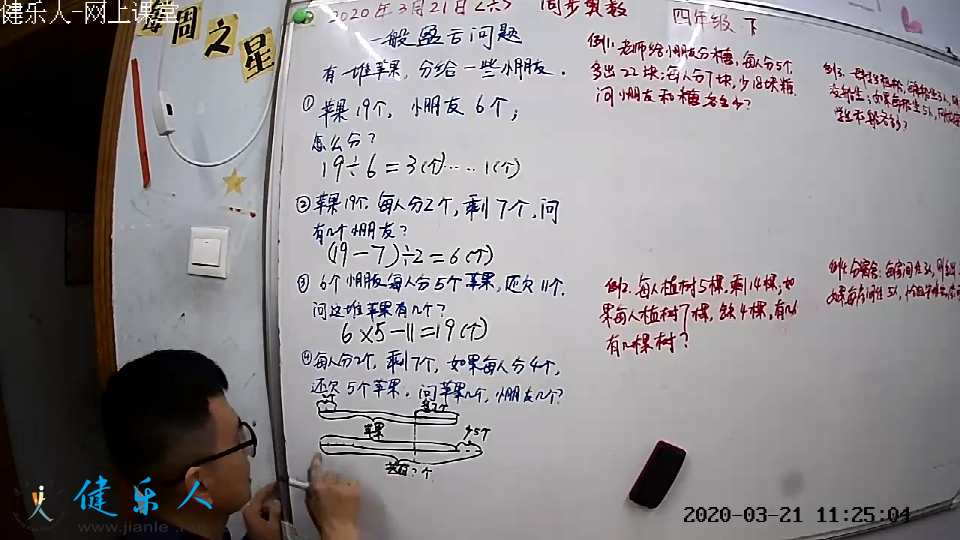 健乐人-网上课堂
每周之星
2020年3月21日<六> 同步奥数 四年级 下
一般盈亏问题
有一堆苹果,分给一些小朋友.
① 苹果19个, 小朋友6个;
怎么分?
19÷6=3(个)……1(个)
②苹果19个,每人分2个,剩7个,问
有几个小朋友?
(19-7)÷2=6(个)
③ 6个小朋友每人分5个苹果,还欠11个.
问这堆苹果有几个?
6×5-11=19(个)
④每人分2个,剩7个,如果每人分4个,
还欠5个苹果,问苹果几个,小朋友几个?
苹果
少5个
例1:老师给小朋友分糖,每人分5个,
多出22块;每人分7块,少18块糖,
问小朋友和糖各多少?
例2.每人植树5棵,剩14棵,如
果每人植树7棵,缺4棵,有几
有几棵树?
健乐人
www.jianle.ren
2020-03-21 11:25:04